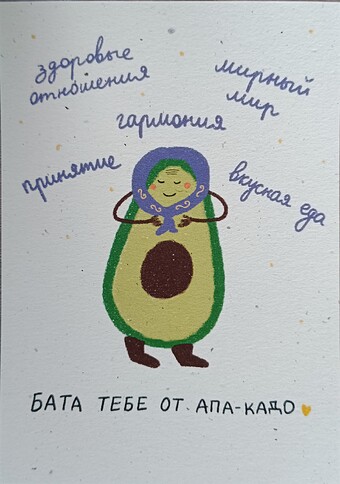 здоровые
отношения
мирный
мир
гармония
принятие
вкусная еда
БАТА ТЕБЕ ОТ АПА-КАДО